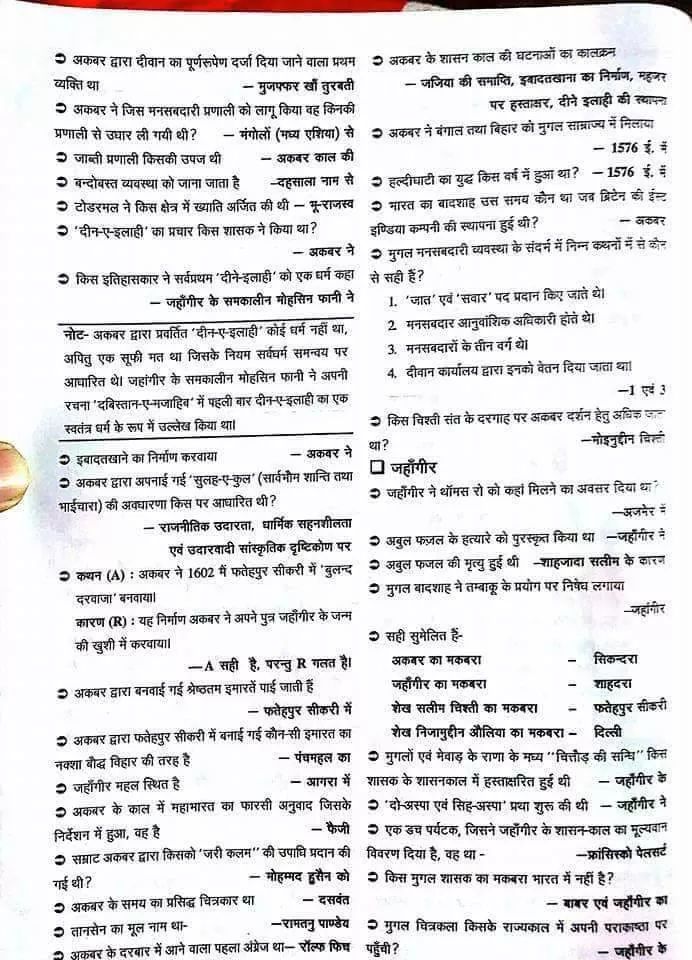 ➲ अकबर द्वारा दीवान का पूर्णरूपेण दर्जा दिया जाने वाला प्रथम
व्यक्ति था – मुजफ्फर खाँ तुरबती
➲ अकबर ने जिस मनसबदारी प्रणाली को लागू किया वह किनकी
प्रणाली से उधार ली गयी थी? – मंगोलों (मध्य एशिया) से
➲ जाब्ती प्रणाली किसकी उपज थी – अकबर काल की
➲ बन्दोबस्त व्यवस्था को जाना जाता है –दहसाला नाम से
➲ टोडरमल ने किस क्षेत्र में ख्याति अर्जित की थी – भू-राजस्व
➲ 'दीन-ए-इलाही' का प्रचार किस शासक ने किया था?
– अकबर ने
➲ किस इतिहासकार ने सर्वप्रथम 'दीने-इलाही' को एक धर्म कहा
– जहाँगीर के समकालीन मोहसिन फानी ने
नोट- अकबर द्वारा प्रवर्तित 'दीन-ए-इलाही' कोई धर्म नहीं था,
अपितु एक सूफी मत था जिसके नियम सर्वधर्म समन्वय पर
आधारित थे। जहांगीर के समकालीन मोहसिन फानी ने अपनी
रचना 'दबिस्तान-ए-मजाहिब' में पहली बार दीन-ए-इलाही का एक
स्वतंत्र धर्म के रूप में उल्लेख किया था।
➲ इबादतखाने का निर्माण करवाया – अकबर ने
➲ अकबर द्वारा अपनाई गई 'सुलह-ए-कुल' (सार्वभौम शान्ति तथा
भाईचारा) की अवधारणा किस पर आधारित थी?
– राजनीतिक उदारता, धार्मिक सहनशीलता
एवं उदारवादी सांस्कृतिक दृष्टिकोण पर
➲ कथन (A) : अकबर ने 1602 में फतेहपुर सीकरी में 'बुलन्द
दरवाजा' बनवाया।
कारण (R) : यह निर्माण अकबर ने अपने पुत्र जहाँगीर के जन्म
की खुशी में करवाया।
–A सही है, परन्तु R गलत है।
➲ अकबर द्वारा बनवाई गई श्रेष्ठतम इमारतें पाई जाती हैं
– फतेहपुर सीकरी में
➲ अकबर द्वारा फतेहपुर सीकरी में बनाई गई कौन-सी इमारत का
नक्शा बौद्ध विहार की तरह है – पंचमहल का
➲ जहाँगीर महल स्थित है – आगरा में
➲ अकबर के काल में महाभारत का फारसी अनुवाद जिसके
निर्देशन में हुआ, वह है – फैजी
➲ सम्राट अकबर द्वारा किसको 'जरी कलम'' की उपाधि प्रदान की
गई थी? – मोहम्मद हुसैन को
➲ अकबर के समय का प्रसिद्ध चित्रकार था – दसवंत
➲ तानसेन का मूल नाम था- –रामतनु पाण्डेय
➲ अकबर के दरबार में आने वाला पहला अंग्रेज था– रॉल्फ फिच
➲ अकबर के शासन काल की घटनाओं का कालक्रम
– जजिया की समाप्ति, इबादतखाना का निर्माण, महजर
पर हस्ताक्षर, दीने इलाही की स्थापना
➲ अकबर ने बंगाल तथा बिहार को मुगल साम्राज्य में मिलाया
– 1576 ई. में
➲ हल्दीघाटी का युद्ध किस वर्ष में हुआ था? – 1576 ई. में
➲ भारत का बादशाह उस समय कौन था जब ब्रिटेन की ईस्ट
इण्डिया कम्पनी की स्थापना हुई थी? – अकबर
➲ मुगल मनसबदारी व्यवस्था के संदर्भ में निम्न कथनों में से कौन
से सही हैं?
1. 'जात' एवं 'सवार' पद प्रदान किए जाते थे।
2. मनसबदार आनुवांशिक अधिकारी होते थे।
3. मनसबदारों के तीन वर्ग थे।
4. दीवान कार्यालय द्वारा इनको वेतन दिया जाता था।
–1 एवं 3
➲ किस चिश्ती संत के दरगाह पर अकबर दर्शन हेतु अधिक जाता
था? –मोइनुद्दीन चिश्ती
❑ जहाँगीर
➲ जहाँगीर ने थॉमस रो को कहां मिलने का अवसर दिया था?
–अजमेर में
➲ अबुल फज़ल के हत्यारे को पुरस्कृत किया था –जहाँगीर ने
➲ अबुल फजल की मृत्यु हुई थी –शाहजादा सलीम के कारण
➲ मुगल बादशाह ने तम्बाकू के प्रयोग पर निषेध लगाया
–जहांगीर
➲ सही सुमेलित हैं-
अकबर का मकबरा – सिकन्दरा
जहाँगीर का मकबरा – शाहदरा
शेख सलीम चिश्ती का मकबरा – फतेहपुर सीकरी
शेख निजामुद्दीन औलिया का मकबरा – दिल्ली
➲ मुगलों एवं मेवाड़ के राणा के मध्य ''चित्तौड़ की सन्धि'' किस
शासक के शासनकाल में हस्ताक्षरित हुई थी – जहाँगीर के
➲ 'दो-अस्पा एवं सिह-अस्पा' प्रथा शुरू की थी – जहाँगीर ने
➲ एक डच पर्यटक, जिसने जहाँगीर के शासन-काल का मूल्यवान
विवरण दिया है, वह था - –फ्रांसिस्को पेलसर्ट
➲ किस मुगल शासक का मकबरा भारत में नहीं है?
– बाबर एवं जहाँगीर का
➲ मुगल चित्रकला किसके राज्यकाल में अपनी पराकाष्ठा पर
पहुँची? – जहाँगीर के